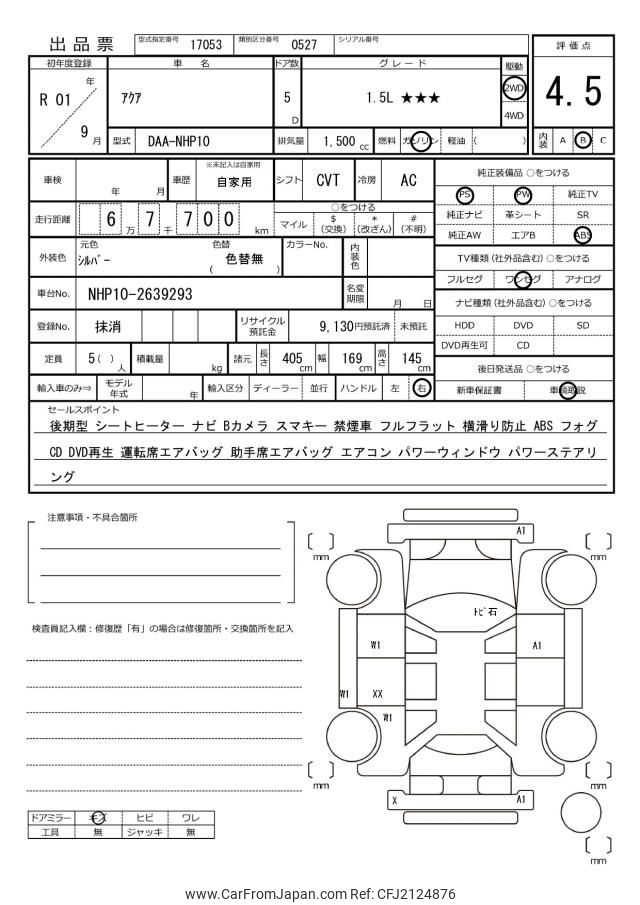 出品票 型式指定番号 17053 類別区分番号 0527 シリアル番号
評価点
4.5
内装 A B C
初年度登録 車名 ドア数 グレード 駆動
R 01 年 9 月 アクア 5 D 1.5L ★★★ 2WD 4WD
型式 DAA-NHP10 排気量 1,500 cc 燃料 ガソリン 軽油 ( )
車検 年 月 車歴 ※未記入は自家用 自家用 シフト CVT 冷房 AC
走行距離 6 万 7 千 7 0 0 km
○をつける
マイル $ (交換) * (改ざん) # (不明)
外装色 元色 シルバー 色替 ( 色替無 ) カラーNo. 内装色
車台No. NHP10-2639293 名変期限 月 日
登録No. 抹消 リサイクル預託金 9,130円預託済 未預託
定員 5 ( ) 人 積載量 kg 諸元 長さ 405 cm 幅 169 cm 高さ 145 cm
輸入車のみ⇒ モデル年式 年 輸入区分 ディーラー 並行 ハンドル 左 右
純正装備品 ○をつける
PS PW 純正TV
純正ナビ 革シート SR
純正AW エアB ABS
TV種類 (社外品含む) ○をつける
フルセグ ワンセグ アナログ
ナビ種類 (社外品含む) ○をつける
HDD DVD SD
DVD再生可 CD
後日発送品 ○をつける
新車保証書 車輌取説
セールスポイント
後期型 シートヒーター ナビ Bカメラ スマキー 禁煙車 フルフラット 横滑り防止 ABS フォグ
CD DVD再生 運転席エアバッグ 助手席エアバッグ エアコン パワーウィンドウ パワーステアリ
ング
注意事項・不具合箇所
検査員記入欄：修復歴「有」の場合は修復箇所・交換箇所を記入
ドアミラー キズ ヒビ ワレ
工具 無 ジャッキ 無
A1
mm mm
トビ石
W1 A1
W1 XX
W1
mm mm
X A1
mm
www.CarFromJapan.com Ref: CFJ2124876